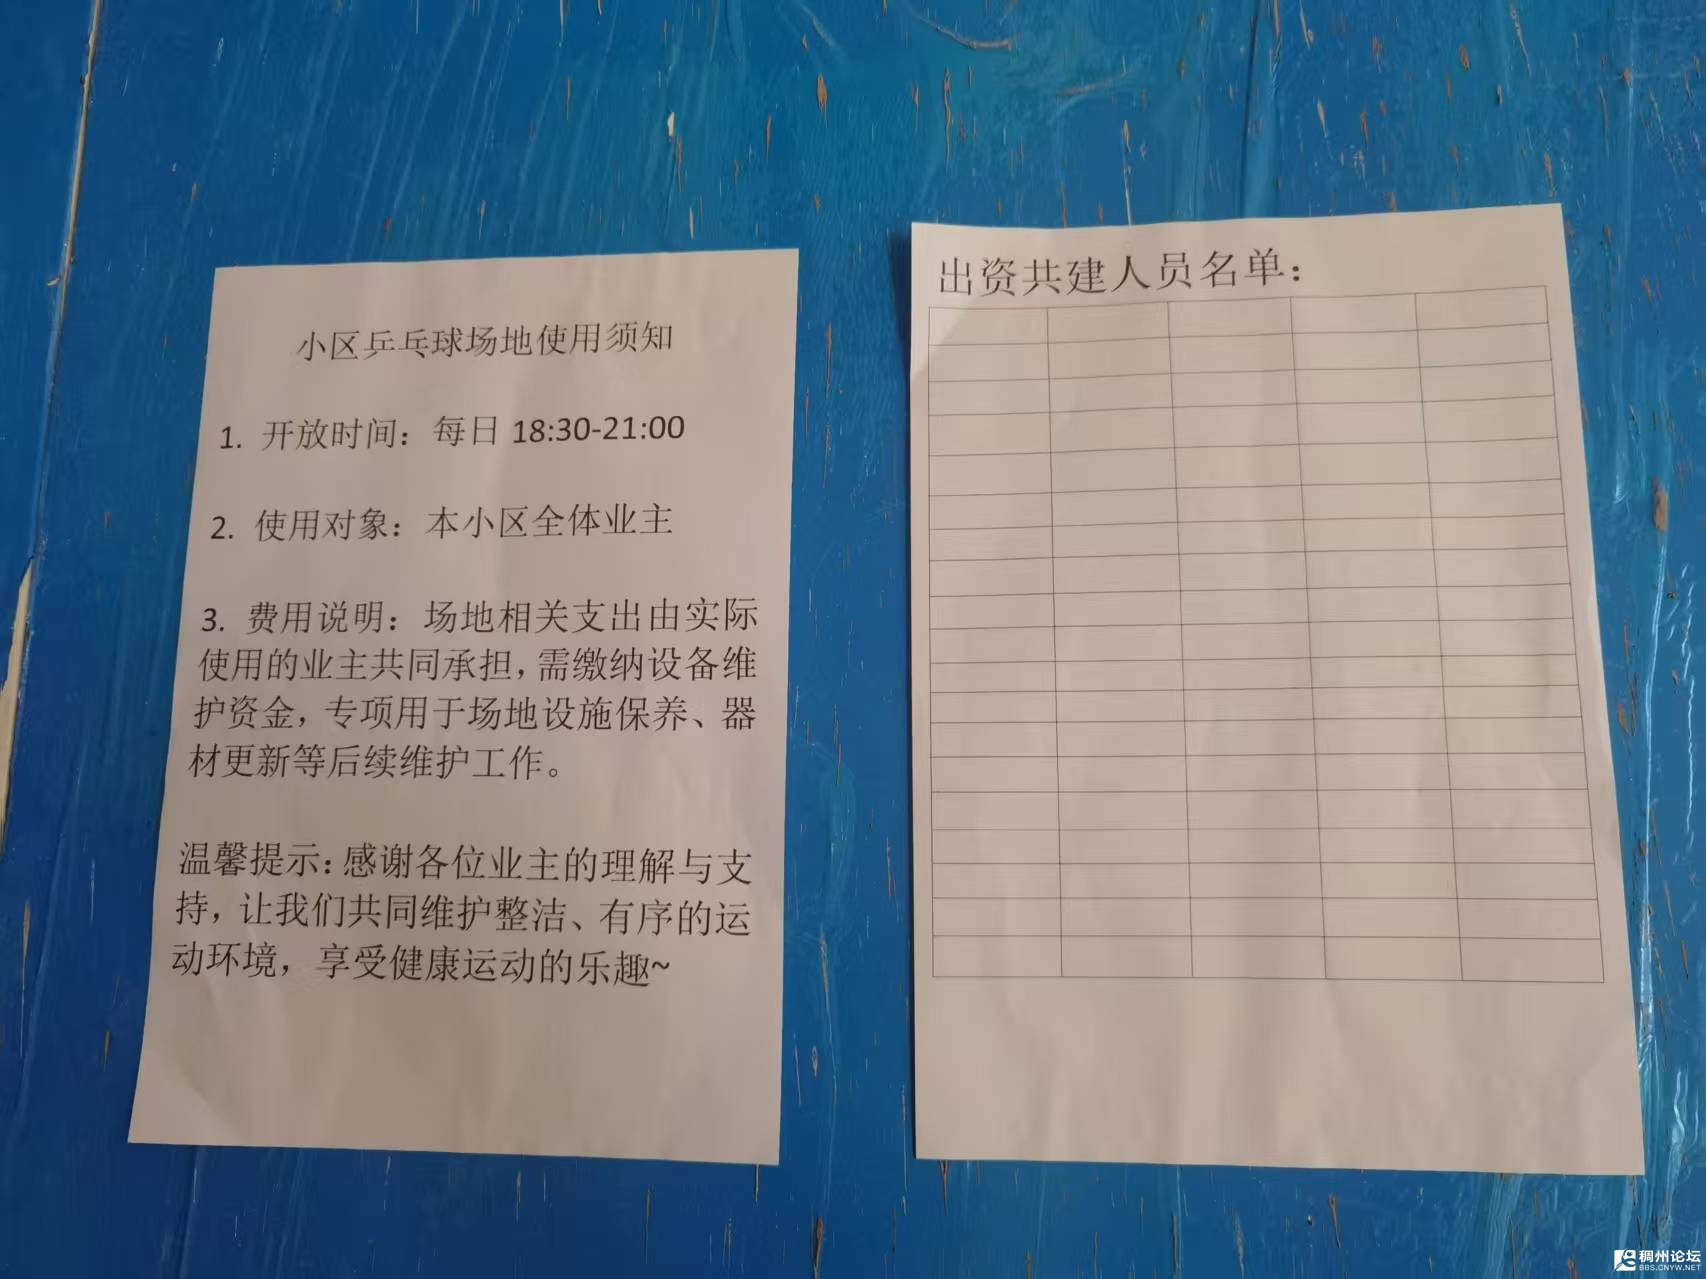 小区乒乓球场地使用须知
1. 开放时间：每日 18:30-21:00
2. 使用对象：本小区全体业主
3. 费用说明：场地相关支出由实际
使用的业主共同承担，需缴纳设备维
护资金，专项用于场地设施保养、器
材更新等后续维护工作。
温馨提示：感谢各位业主的理解与支
持，让我们共同维护整洁、有序的运
动环境，享受健康运动的乐趣~
出资共建人员名单：
稠州论坛
BBS.CNYW.NET